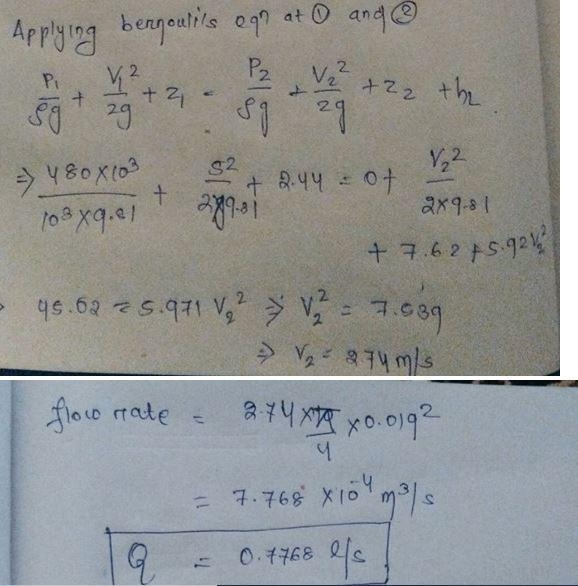 Applying bernoulis eqn at ① and ②
P₁/ρg + V₁²/2g + z₁ = P₂/ρg + V₂²/2g + z₂ + hL
⇒ 480×10³/10³×9.81 + 5²/2×9.81 + 2.44 = 0 + V₂²/2×9.81
+ 7.62 + 5.92V₂²
45.02 = 5.971 V₂² ⇒ V₂² = 7.539
⇒ V₂ = 2.74 m/s
flow rate = 2.74 × π/4 × 0.019²
= 7.768 × 10⁻⁴ m³/s
Q = 0.7768 l/s